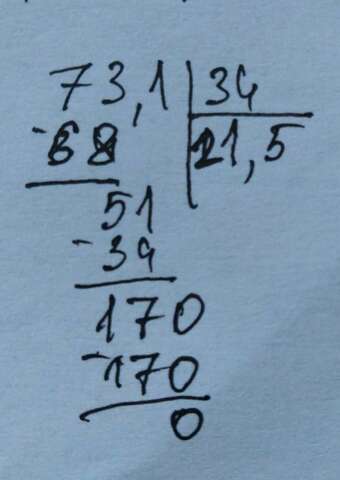 73,1 34
-68 21,5
51
-34
170
-170
0